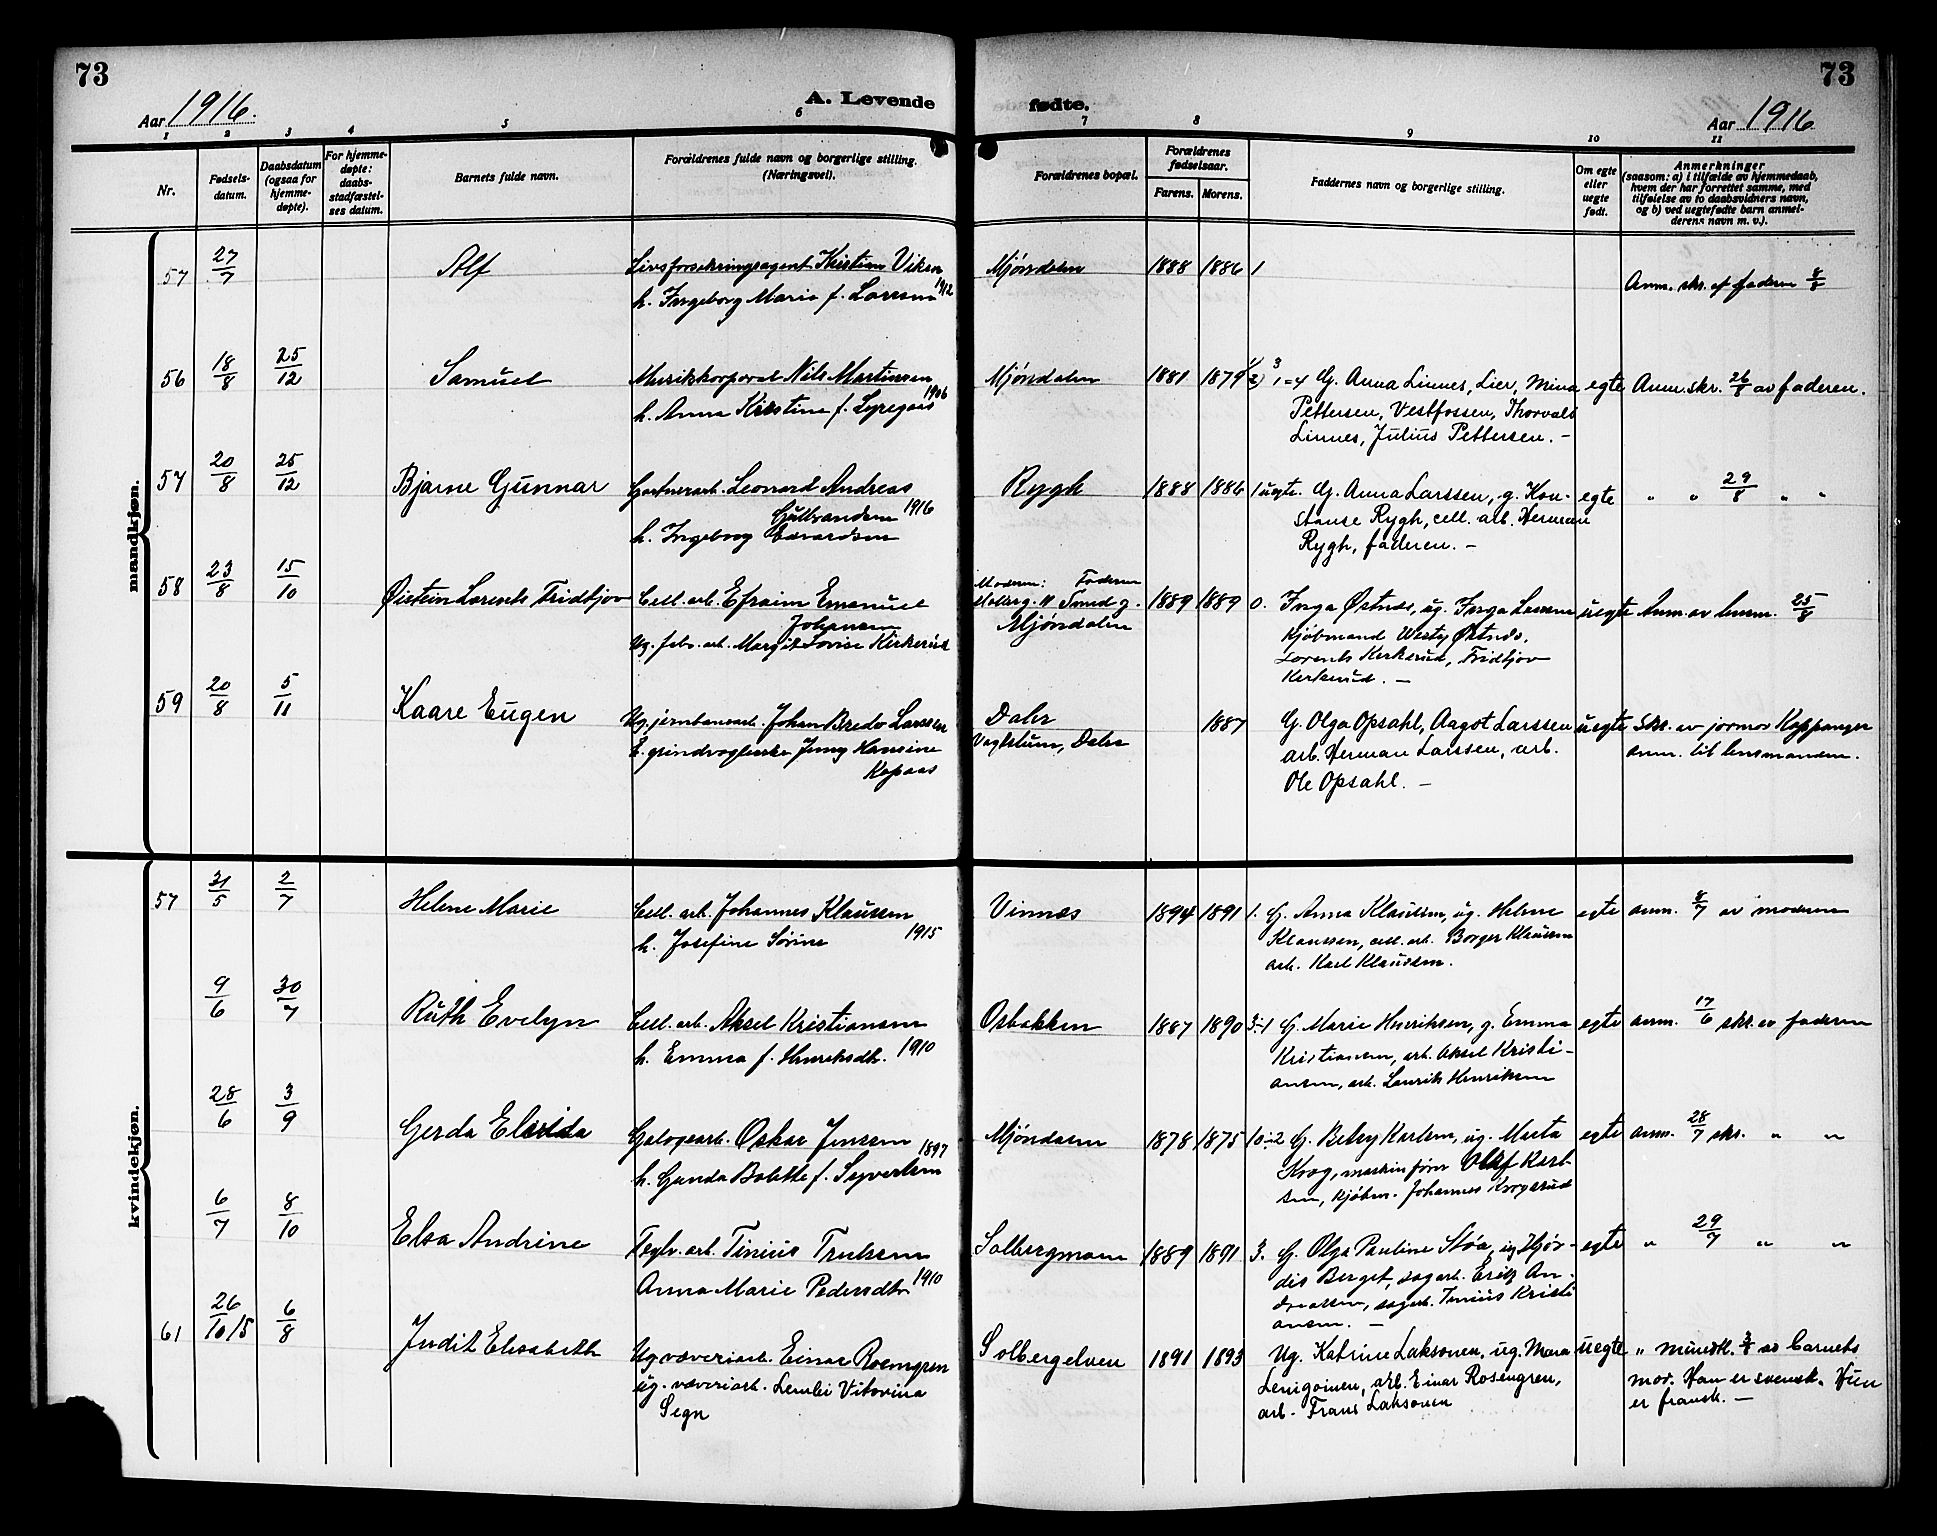 73
73
Aar 1916.
A. Levende
fødte.
Aar 1916
1 2 3 4 5 6 7 8 9 10 11
Nr.
Fødsels-
datum.
Daabsdatum
(ogsaa for
hjemme-
døpte).
For hjemme-
døpte:
daabs-
stadfæstel-
ses datum.
Barnets fulde navn.
Forældrenes fulde navn og borgerlige stilling.
(Næringsvei).
Forældrenes bopæl.
Forældrenes
fødselsaar.
Farens. Morens.
Faddernes navn og borgerlige stilling.
Om egte
eller
uegte
født.
Anmerkninger
(saasom: a) i tilfælde av hjemmedaab,
hvem der har forrettet samme, med
tilføielse av to daabsvidners navn,
og b) ved uegtefødte barn anmel-
derens navn m. v.).
mandkjøn.
57 27/7 Alf Livsforsikringsagent Kristian Viken Mjøndalen 1888 1886 1
h. Ingeborg Marie f. Larsen 1912 Anm. skr. af faderen 8/8
56 18/8 25/12 Samuel Musikkorporal Nils Martinsen Mjøndalen 1881 1879 1=4 G. Anna Linnes, Lier, Mina egte Anm. skr. 26/8 av faderen.
h. Anna Kirstine f. 1906 Pettersen, Vestfossen, Thorvald
Linnes, Julius Pettersen. -
57 20/8 25/12 Bjarne Gunnar Gartnerarb. Leonard Andreas Rygh 1888 1886 1 uegte. G. Anna Larssen, g. Kon- egte " " 29/8 " "
Gulbrandsen 1916 stanse Rygh, cell. arb. Herman
h. Ingeborg Edvardsen Rygh, faderen. -
58 23/8 15/10 Øistein Lorents Fridtjov Cell. arb. Efraim Emanuel Moderen: Faderen 1889 1889 0. Inga Østnes, ug. Inga Larsen uegte Anm. av lensm. 25/8
Johansen Mjøndalen Kjøbmand Østnes,
Ug. fabr. arb. Margit Lovise Kirkerud Lorents Kerkerud, Fridtjov
Kerkerud. -
59 20/8 5/11 Kaare Eugen Ug. jernbanearb. Johan Bredo Larssen Daler 1887 G. Olga Opsahl, Aagot Larssen uegte Skr. av jormor Koppanger
Jenny Hansine Daler arb. Herman Larssen, arb. anm. til lensmanden.
Kopaas Ole Opsahl. -
kvindekjøn.
57 31/5 2/7 Helene Marie Cell. arb. Johannes Klausen Vinnes 1894 1891 1. G. Anna Klausen, ug. Helene egte anm. 8/7 av moderen
h. Josefine Sørine 1915 Klaussen, cell. arb. Borger Klausen
arb. Karl Klaussen.
9/6 30/7 Ruth Evelyn Cell. arb. Aksel Kristiansen Osbakken 1887 1890 3-1 G. Marie Henriksen, g. Emma egte anm. 17/6 skr. av faderen
h. Emma f. Henriksdt. 1910 Kristiansen, arb. Aksel Kristi-
ansen, arb. Laurits Henriksen
28/6 3/9 Gerda Elvida Galogearb. Oskar Jensen Mjøndalen 1878 1875 10-2 G. Betsy Karlsen, ug. Marta egte anm. 28/7 skr. " "
1897 h. Gunda Bolette f. Syvertsen Krog, maskinfører Olaf Karl-
sen, kjøbm. Johannes Krogsrud
6/7 8/10 Elsa Andrine Teglv. arb. Tinius Trulsen Solbergmoen 1889 1891 3. G. Olga Pauline Støa, ug Hjør- egte " 29/7 " "
Anna Marie Pedersdtr 1910 dis Berget, sagarb. Erik An-
dreassen, sagarb. Tinius Kristi
ansen. -
61 26/10 15 6/8 Judit Elisabeth Ug væveriarb. Einar Rosengren Solbergelven 1891 1893 Ug. Katrine Laksonen, ug. Mara uegte " mundtl. 3/8 av barnets
ug. væveriarb. Lembi Vitovina Lenigoinen, arb. Einar Rosengren, mor. Han er svensk. Hun
Segn arb. Frans Laksonen er fransk. -